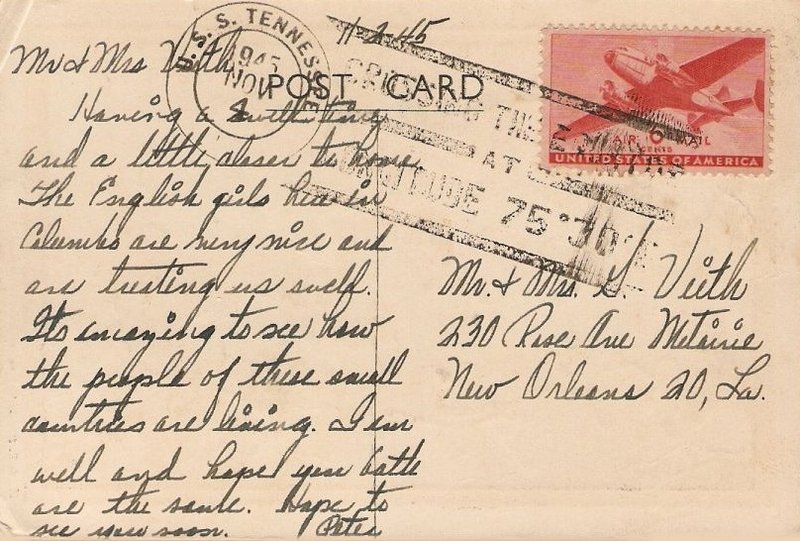 U.S.S. TENNESSEE
1945
NOV
11-2-45
CROSSING THE
AT
LONGITUDE 75°-30'E
POST CARD
AIR 6 MAIL
CENTS
UNITED STATES OF AMERICA
Mr & Mrs Vieth
Having a swell time
and a little closer to home
The English girls here in
Columbo are very nice and
are treating us swell.
Its amazing to see how
the people of these small
countries are living. I am
well and hope you both
are the same. Hope to
see you soon. Peter
Mr. & Mrs. G. Vieth
230 Rose Ave Metairie
New Orleans 20, La.